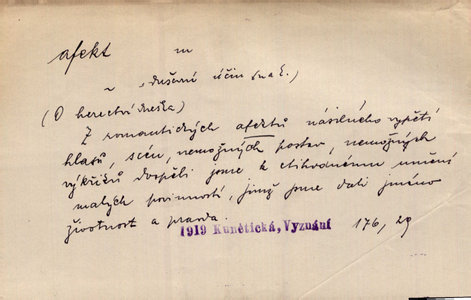 afekt m
~ duševní účin
(O herectví dneška)
Z romantických afektů násilného vypětí
hlasů, scén, nemožných postav, nemožných
výkřiků dospěli jsme k ctihodnému umění
malých povinností, jimž jsme dali jméno
životnost a pravda.
1919 Kunětická, Vyznání 176, 29